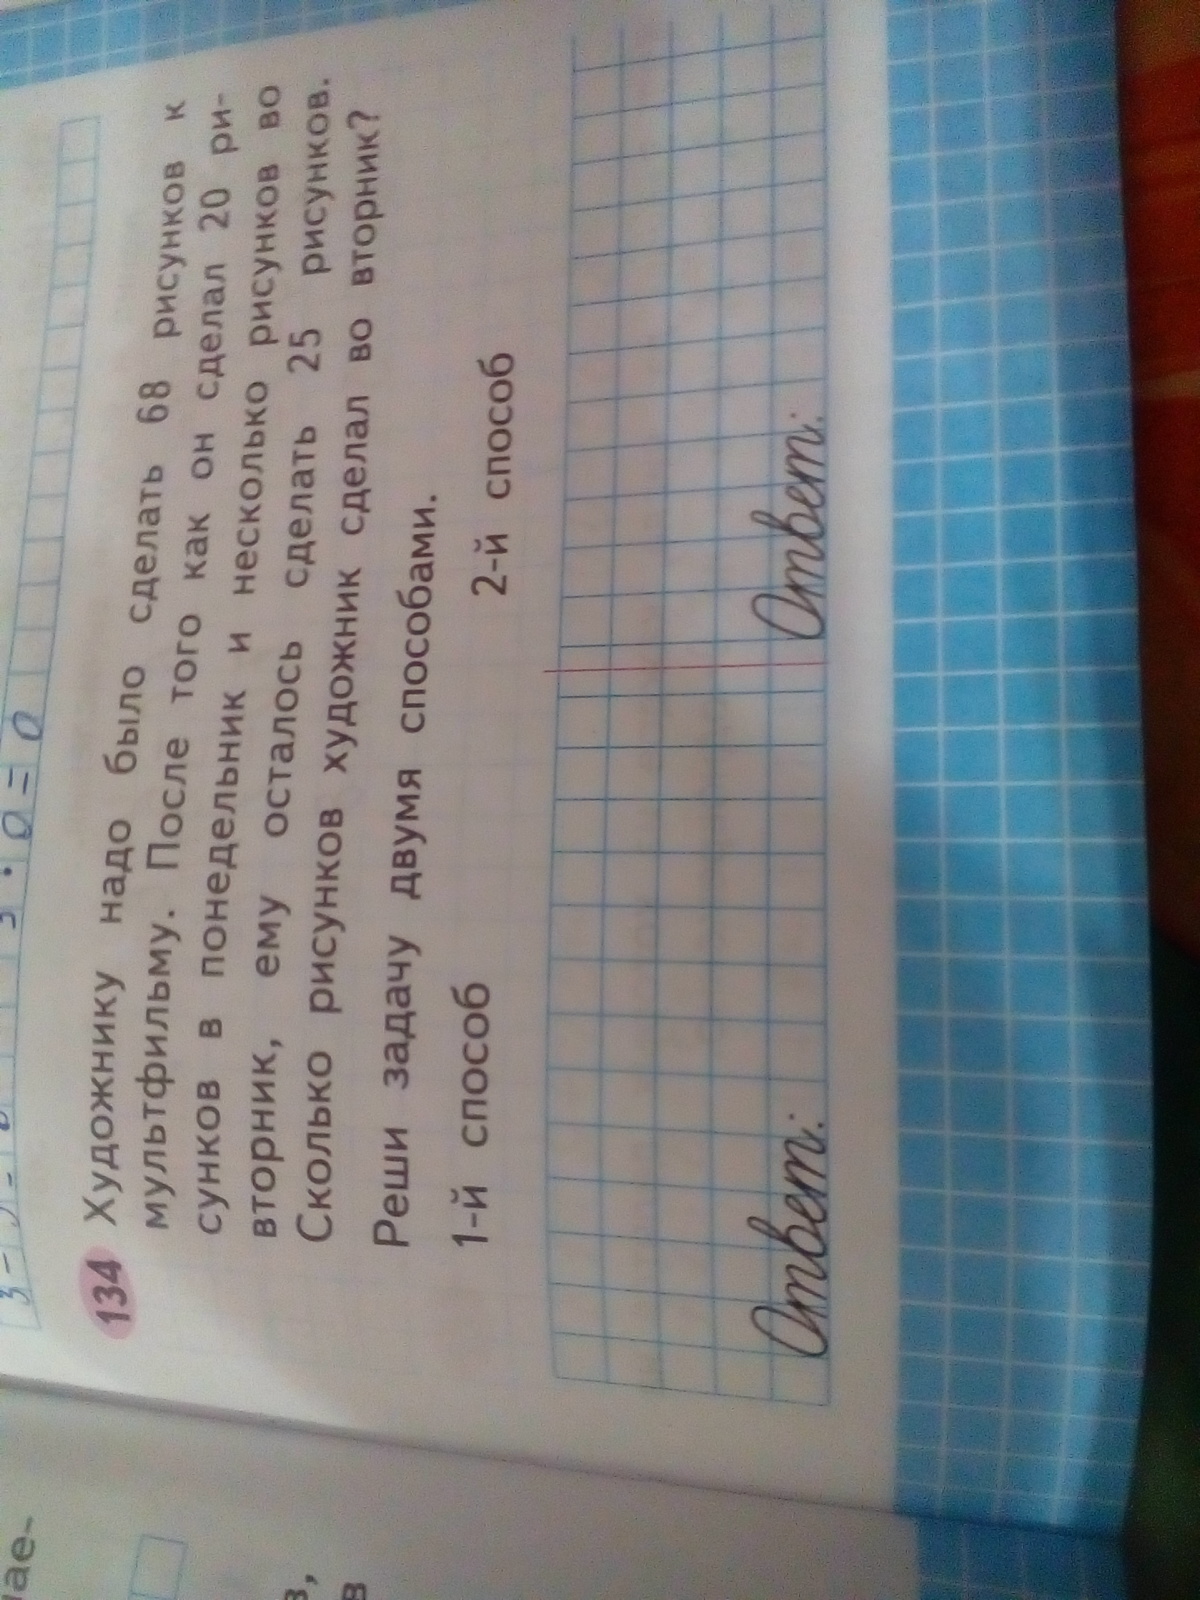 3 : 0 = 0
134 Художнику надо было сделать 68 рисунков к
мультфильму. После того как он сделал 20 ри-
сунков в понедельник и несколько рисунков во
вторник, ему осталось сделать 25 рисунков.
Сколько рисунков художник сделал во вторник?
Реши задачу двумя способами.
1-й способ 2-й способ
Ответ: Ответ: